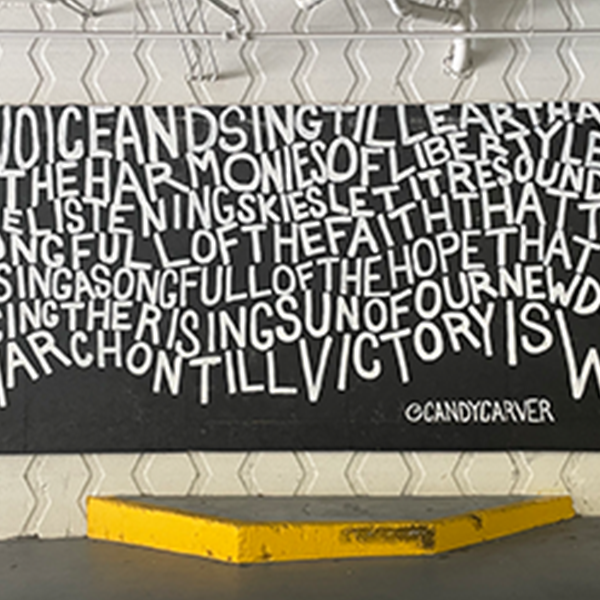 VOICEANDSINGTILLEARTHA
THEHARMONIESOFLIBERTYLE
ELISTENINGSKIESLETITRESOUND
ONGFULLOFTHEFAITHTHATT
SINGASONGFULLOFTHEHOPETHAT
INGTHERISINGSUNOFOURNEWD
ARCHONTILLVICTORYISW
@CANDYCARVER